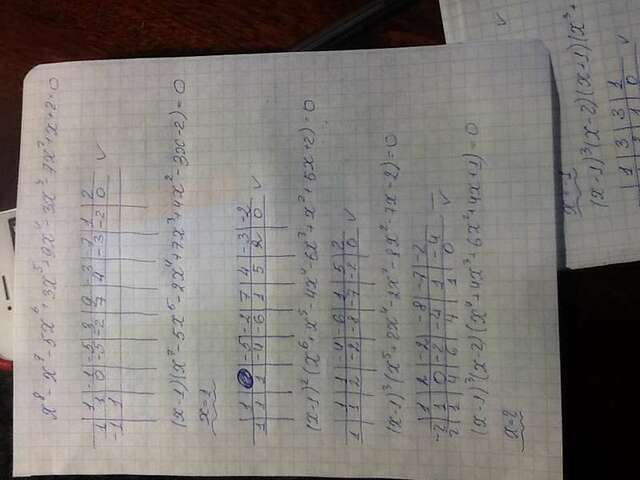 x⁸-x⁷-5x⁶+3x⁵+9x⁴-3x³-7x²+x+2=0
1 -1 -5 3 9 -3 -7 1 2
1 1 0 -5 -2 7 4 -3 -2 0 ✓
-1 1
(x-1)(x⁷-5x⁵-2x⁴+7x³+4x²-3x-2)=0
x=1
1 0 -5 -2 7 4 -3 -2
1 1 1 -4 -6 1 5 2 0 ✓
(x-1)²(x⁶+x⁵-4x⁴-6x³+x²+5x+2)=0
1 1 -4 -6 1 5 2
1 1 2 -2 -8 -7 -2 0 ✓
(x-1)³(x⁵+2x⁴-2x³-8x²-7x-2)=0
1 2 -2 -8 -7 -2
-2 1 0 -2 -4 1 -4 —
2 1 4 6 4 1 0 ✓
(x-1)³(x-2)(x⁴+4x³+6x²+4x+1)=0
x=2
x=-1
(x-1)³(x-2)(x+1)(x³+
1 3 3 1